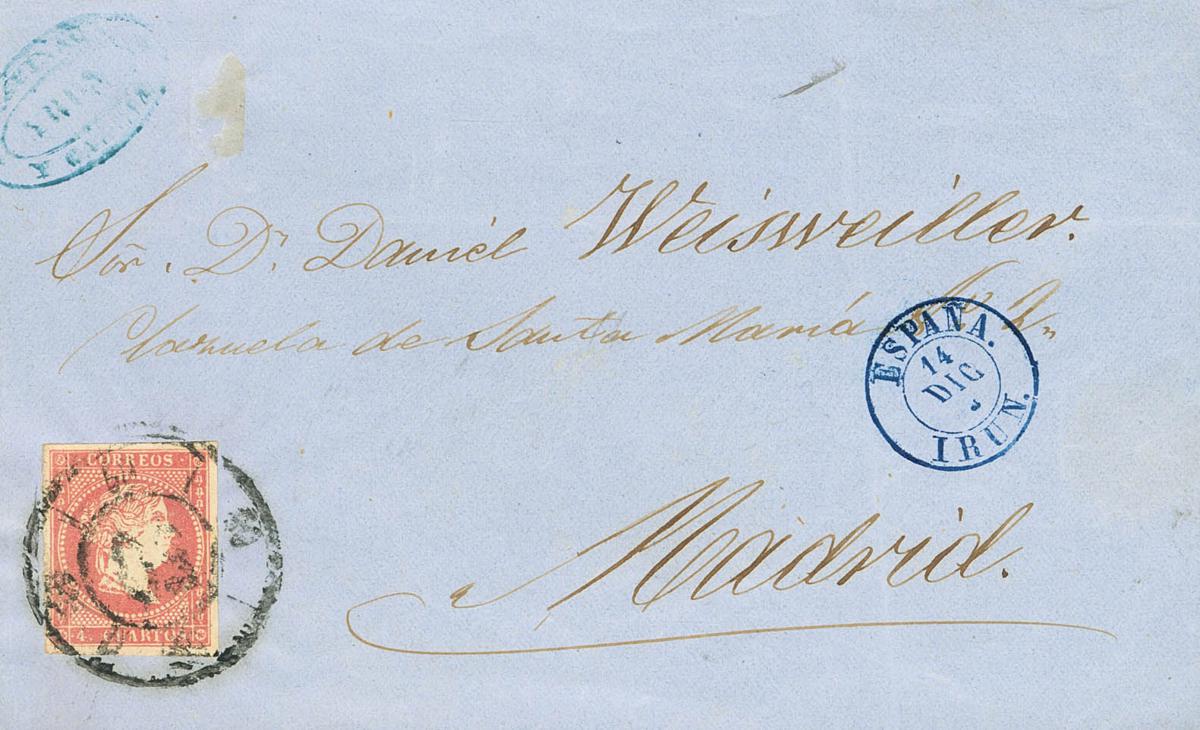 IRUN
Y
Sôr. Dn Daniél Weisweiller.
de Santa María
ESPAÑA.
14
DIC
IRUN.
CORREOS
4 CUARTOS
Madrid.